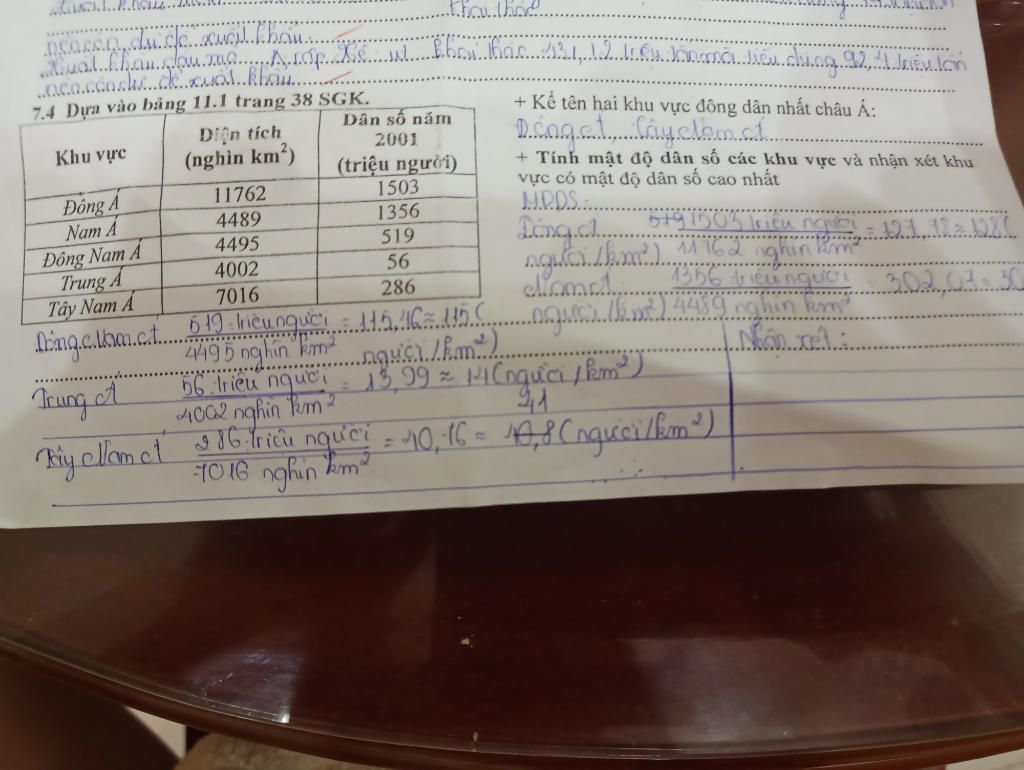 khai thác
nên còn dư để xuất khẩu.
Xuất khẩu dầu mỏ Ả rập Xê út khai thác 431,12 triệu tấn mà tiêu dùng 92,4 triệu tấn
nên còn dư để xuất khẩu
7.4 Dựa vào bảng 11.1 trang 38 SGK.
Khu vực | Diện tích (nghìn km²) | Dân số năm 2001 (triệu người)
Đông Á | 11762 | 1503
Nam Á | 4489 | 1356
Đông Nam Á | 4495 | 519
Trung Á | 4002 | 56
Tây Nam Á | 7016 | 286
+ Kể tên hai khu vực đông dân nhất châu Á:
Đông Á, Tây Nam Á
+ Tính mật độ dân số các khu vực và nhận xét khu
vực có mật độ dân số cao nhất
MĐDS:
Đông Á 1503 triệu người / 11762 nghìn km² = 127,78 ≈ 128 (
người/km²)
Nam Á: 1356 triệu người / 4489 nghìn km² = 302,07 ≈ 30
người/km²)
Đông Nam Á 519 triệu người / 4495 nghìn km² = 115,46 ≈ 115 (
người/km²)
Trung Á 56 triệu người / 4002 nghìn km² = 13,99 ≈ 14 (người/km²)
41
Tây Nam Á 286 triệu người / 7016 nghìn km² = 40,76 ≈ 40,8 (người/km²)
Nhận xét: